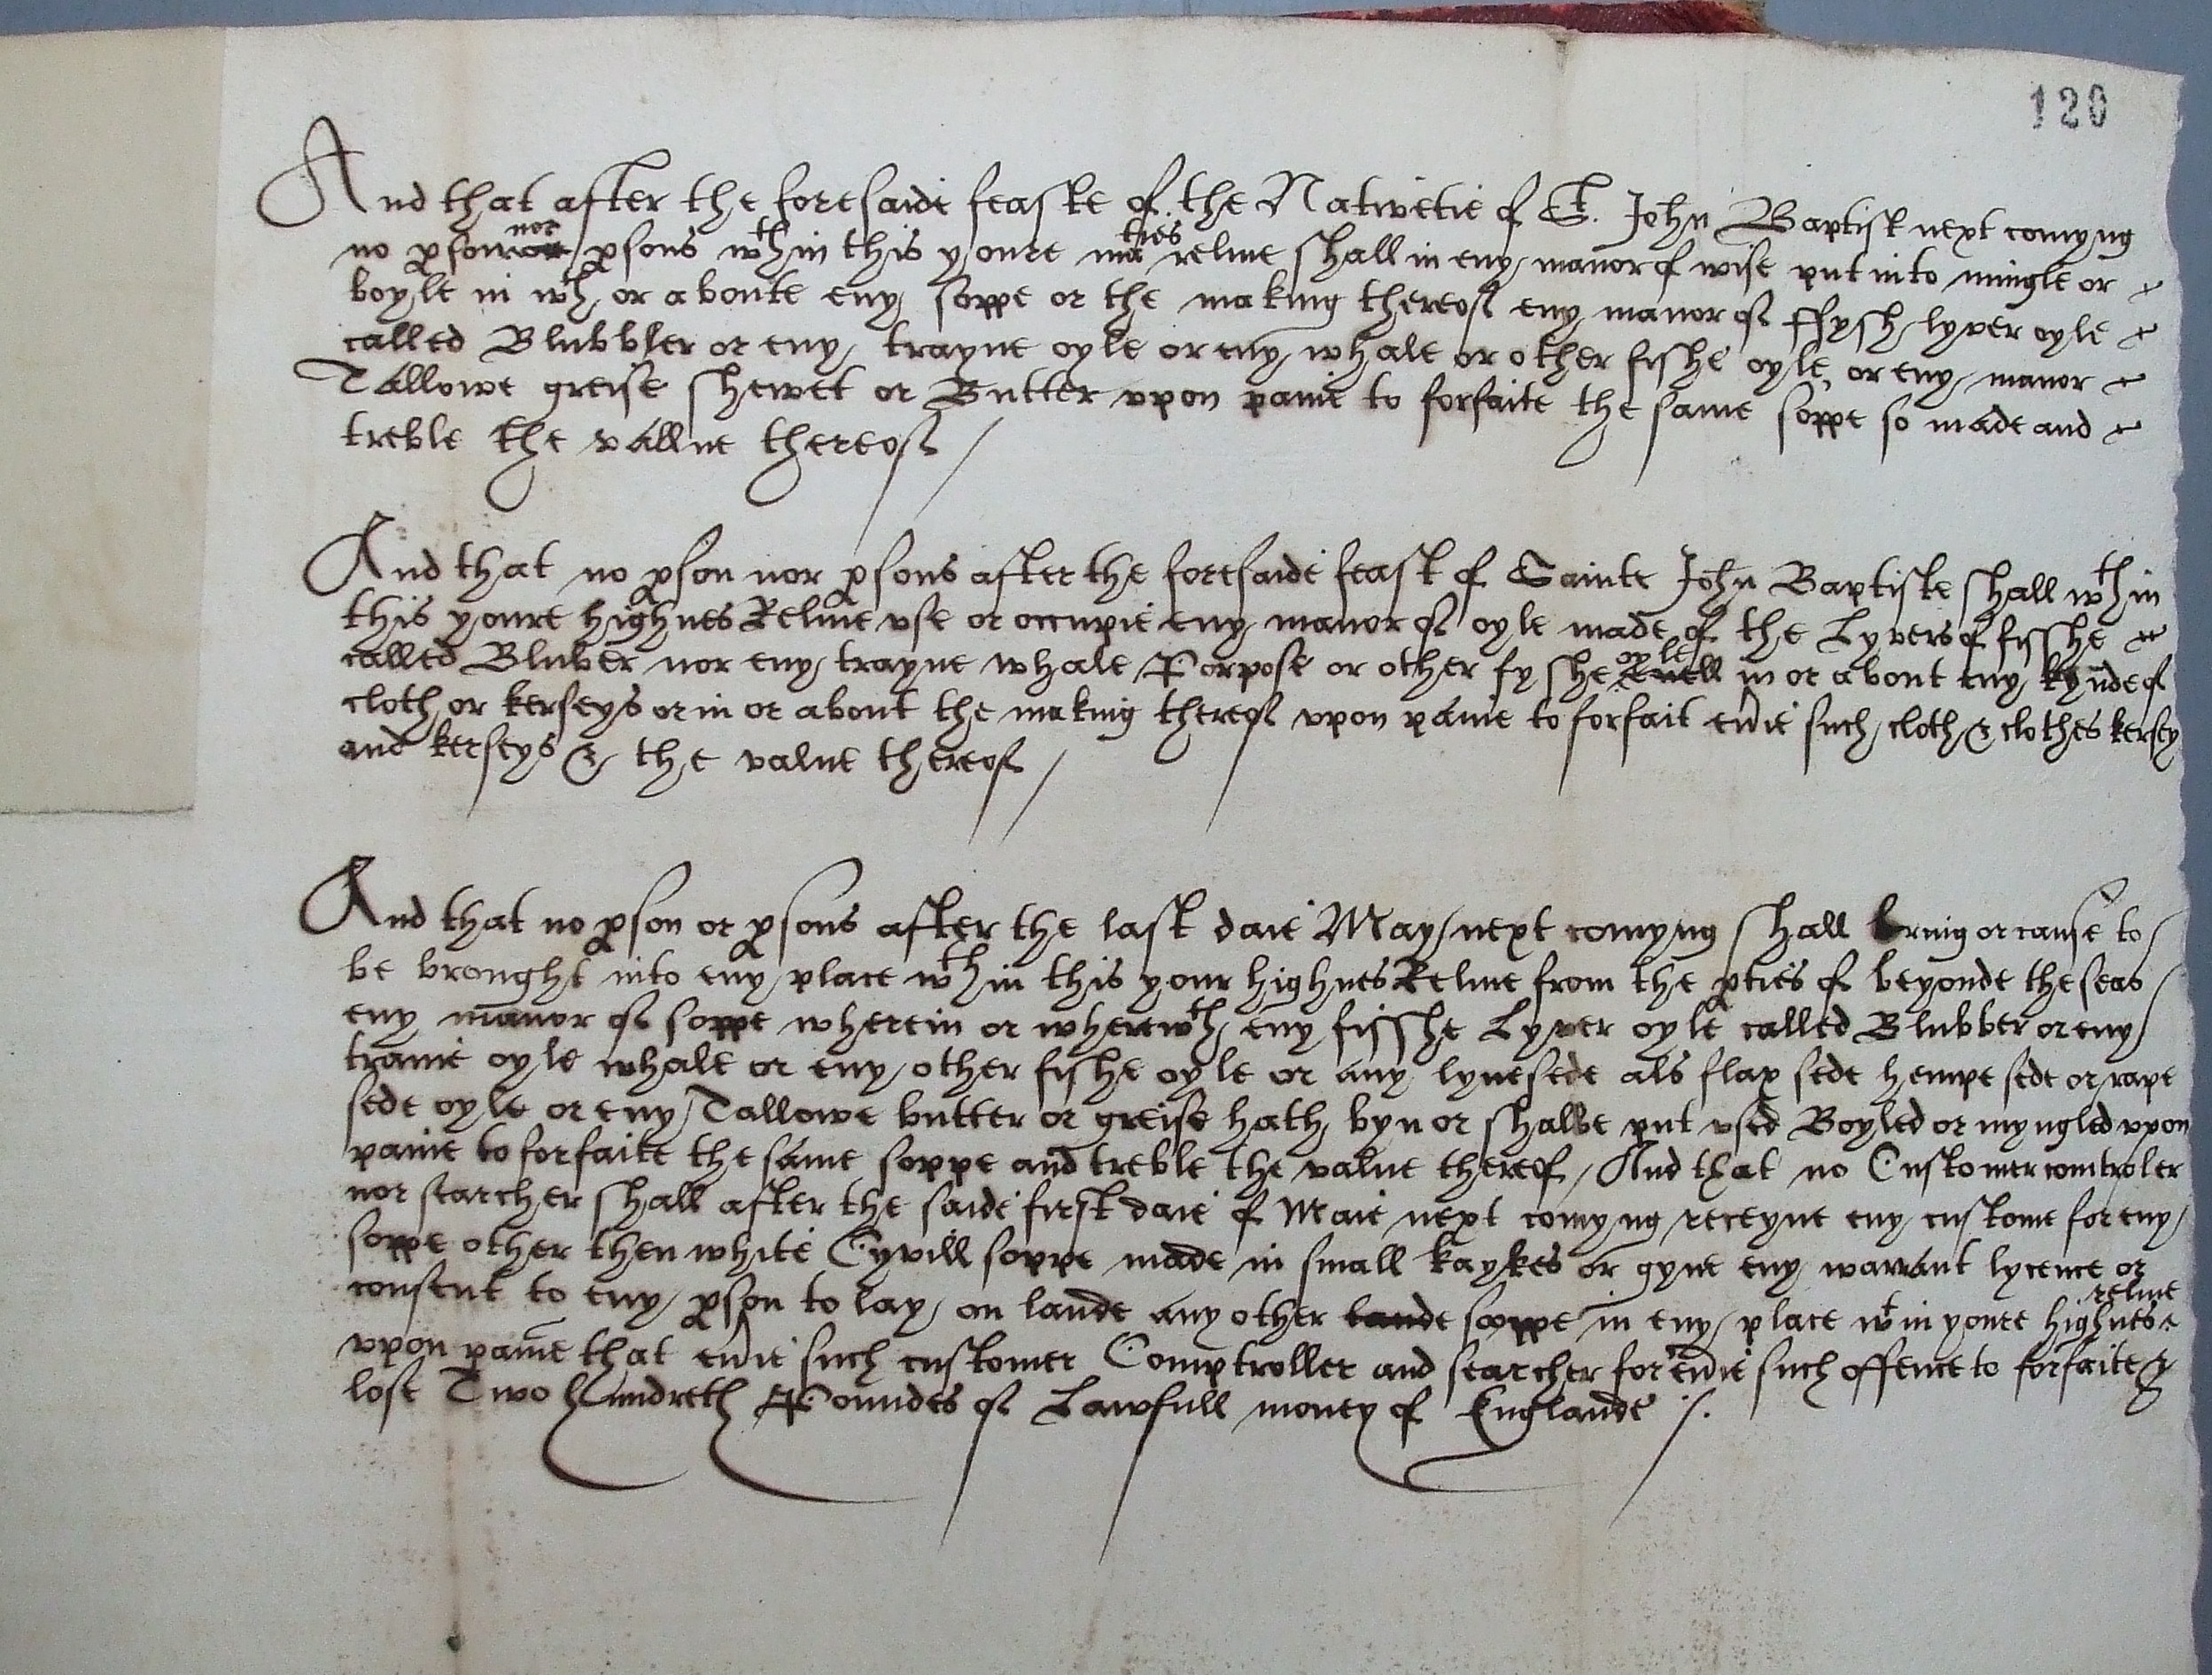 120
And that after the foresaide feaste of the Nativetie of St. John Baptist next comyng
no pson nor psons wthin this youre maties relme shall in eny manor of wise put into mingle or
boyle in wth or aboute eny soppe or the making thereof eny manor of ffysh lyver oyle
called Blubber or eny trayne oyle or eny whale or other fishe oyle or eny manor
Tallowe greise shewet or Butter vpon paine to forfaite the same soppe so made and
treble the vallue thereof /
And that no pson nor psons after the foresaide feast of Sainte John Baptiste shall wthin
this youre highnes Relme vse or occupie eny manor of oyle made of the Lyvers of fisshe
called Bluber nor eny trayne whale Porpose or other fyshe oyle in or about eny kynde of
cloth or kerseys or in or about the making thereof vpon paine to forfait evie such cloth & clothes kersey
and kerseys & the value thereof /
And that no pson or psons after the last daie May next comyng shall bring or cause to
be brought into eny place wthin this your highnes Relme from the pties of beyonde the seas
eny manor of soppe wherein or wherewth eny fisshe Lyver oyle called Blubber or eny
traine oyle whale or eny other fishe oyle or any lynesede als flax sede hempe sede or rape
sede oyle or eny Tallowe butter or greise hath byn or shalbe put vsed Boyled or myngled vpon
paine to forfaite the same soppe and treble the value thereof / And that no Customer comtroler
nor searcher shall after the saide first daie of Maie next comyng receyue eny custome for eny
soppe other then white Cyvill soppe made in small kaykes or gyue eny warrant lycence or
consent to eny pson to lay on lande any other lande soppe in eny place wt in youre highnes relme
vpon paine that evie such customer Comptroller and searcher for evie such offence to forfaite &
lose Two hundreth Poundes of Lawfull money of Englande /.